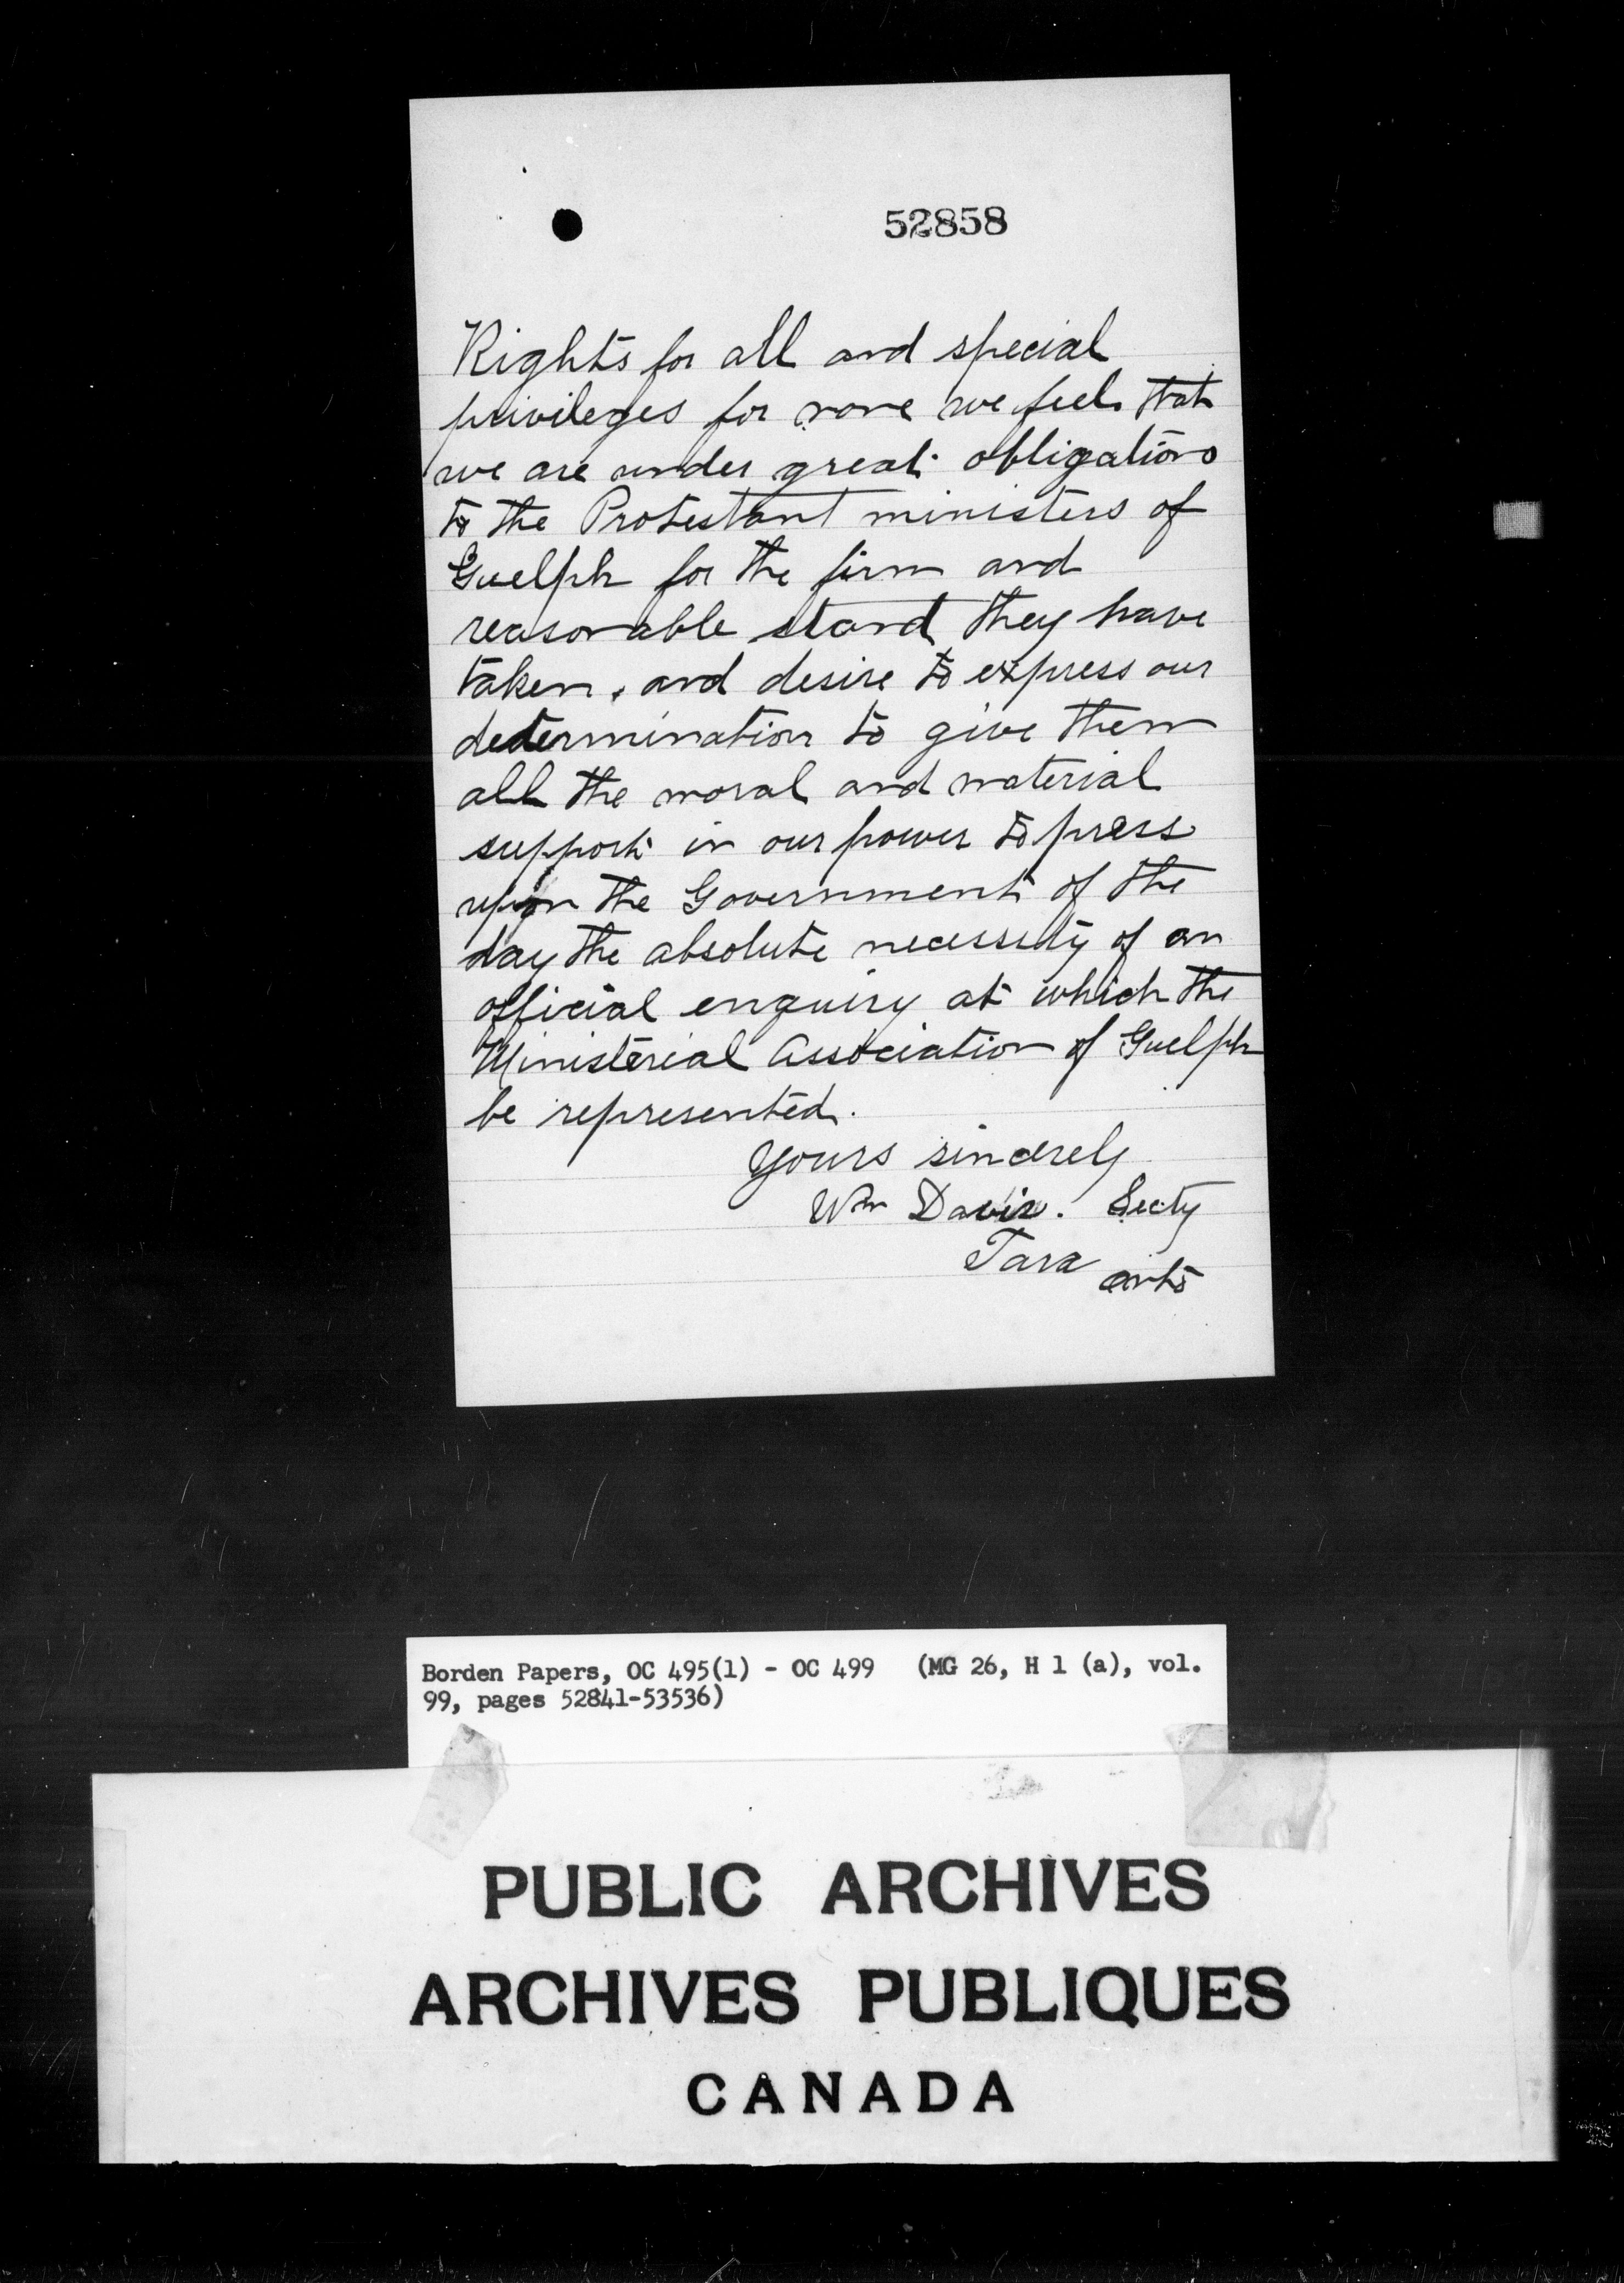 52858
Rights for all and special
privileges for none we feel that
we are under great obligations
to the Protestant ministers of
Guelph for the firm and
reasonable stand they have
taken, and desire to express our
determination to give them
all the moral and material
support in our power to press
upon the Government of the
day the absolute necessity of an
official enquiry at which the
Ministerial Association of Guelph
be represented.
Yours sincerely
Wm Davis. Secty
Tara
Onto
Borden Papers, OC 495(1) - OC 499 (MG 26, H 1 (a), vol.
99, pages 52841-53536)
PUBLIC ARCHIVES
ARCHIVES PUBLIQUES
CANADA